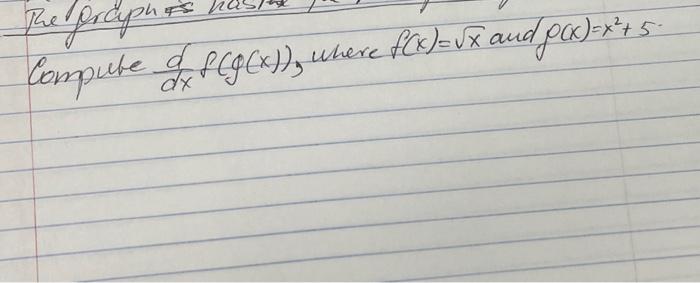 The graph has
Compute d/dx f(g(x)), where f(x)=√x and g(x)=x²+5.